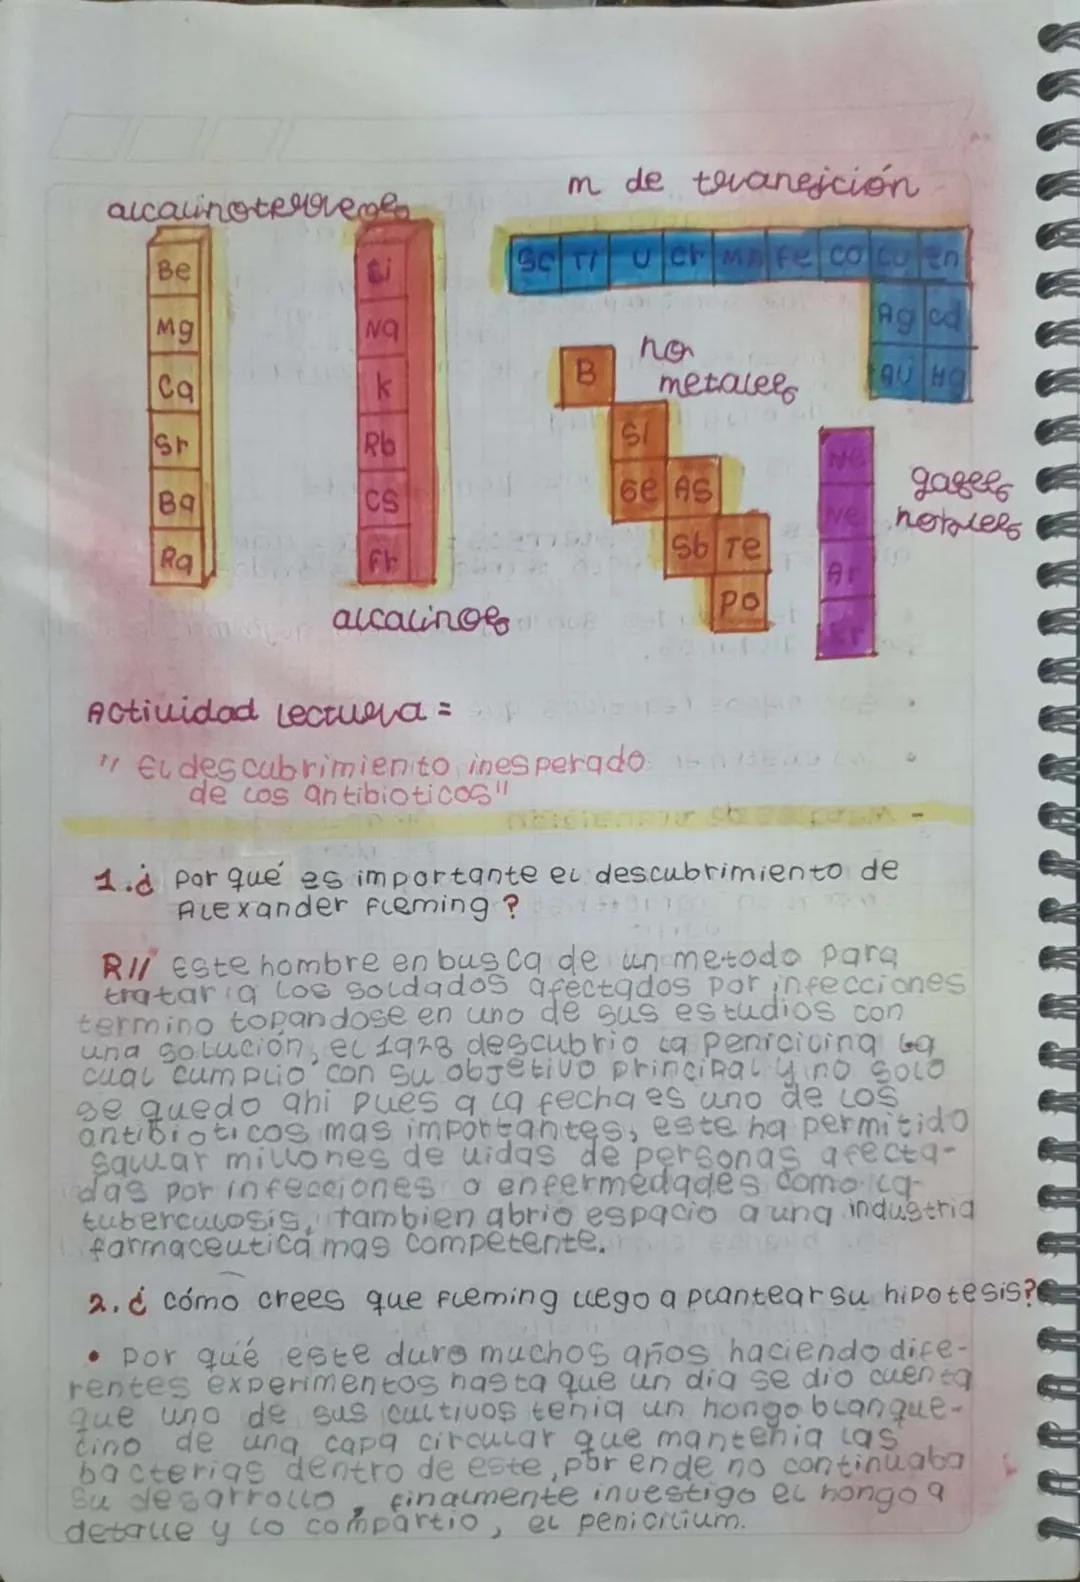 alcalinoterreos
Be
Mg
Ca
Sr
Ba
Ra
Li
Na
K
Rb
CS
Fr
alcalinos
m de transición
SC TI U Cr Mn Fe CO CU Zn
Ag Cd
AU HG
no
metales
B
SI
Ge AS
Sb Te
PO
He
Ne
Ar
Kr
gases
nobles
Actividad Lectura =
"El descubrimiento inesperado
de los antibioticos"
1. ¿ Por qué es importante el descubrimiento de
Alexander Fleming ?
R// Este hombre en busca de un metodo para
tratar a los soldados afectados por infecciones
termino topandose en uno de sus estudios con
una solución, el 1928 descubrio la penicilina la
cual cumplio con su objetivo principal y no solo
se quedo ahi pues a la fecha es uno de los
antibioticos mas importantes, este ha permitido
salvar millones de vidas de personas afecta-
das por infecciones o enfermedades como la
tuberculosis, tambien abrio espacio a una industria
farmaceutica mas competente.
2. ¿ cómo crees que Fleming llego a plantear su hipotesis?
• Por qué este duro muchos años haciendo dife-
rentes experimentos hasta que un dia se dio cuenta
que uno de sus cultivos tenia un hongo blanque-
cino de una capa circular que mantenia las
bacterias dentro de este, por ende no continuaba
su desarrollo, finalmente investigo el hongo a
detalle y lo compartio, el penicilium.